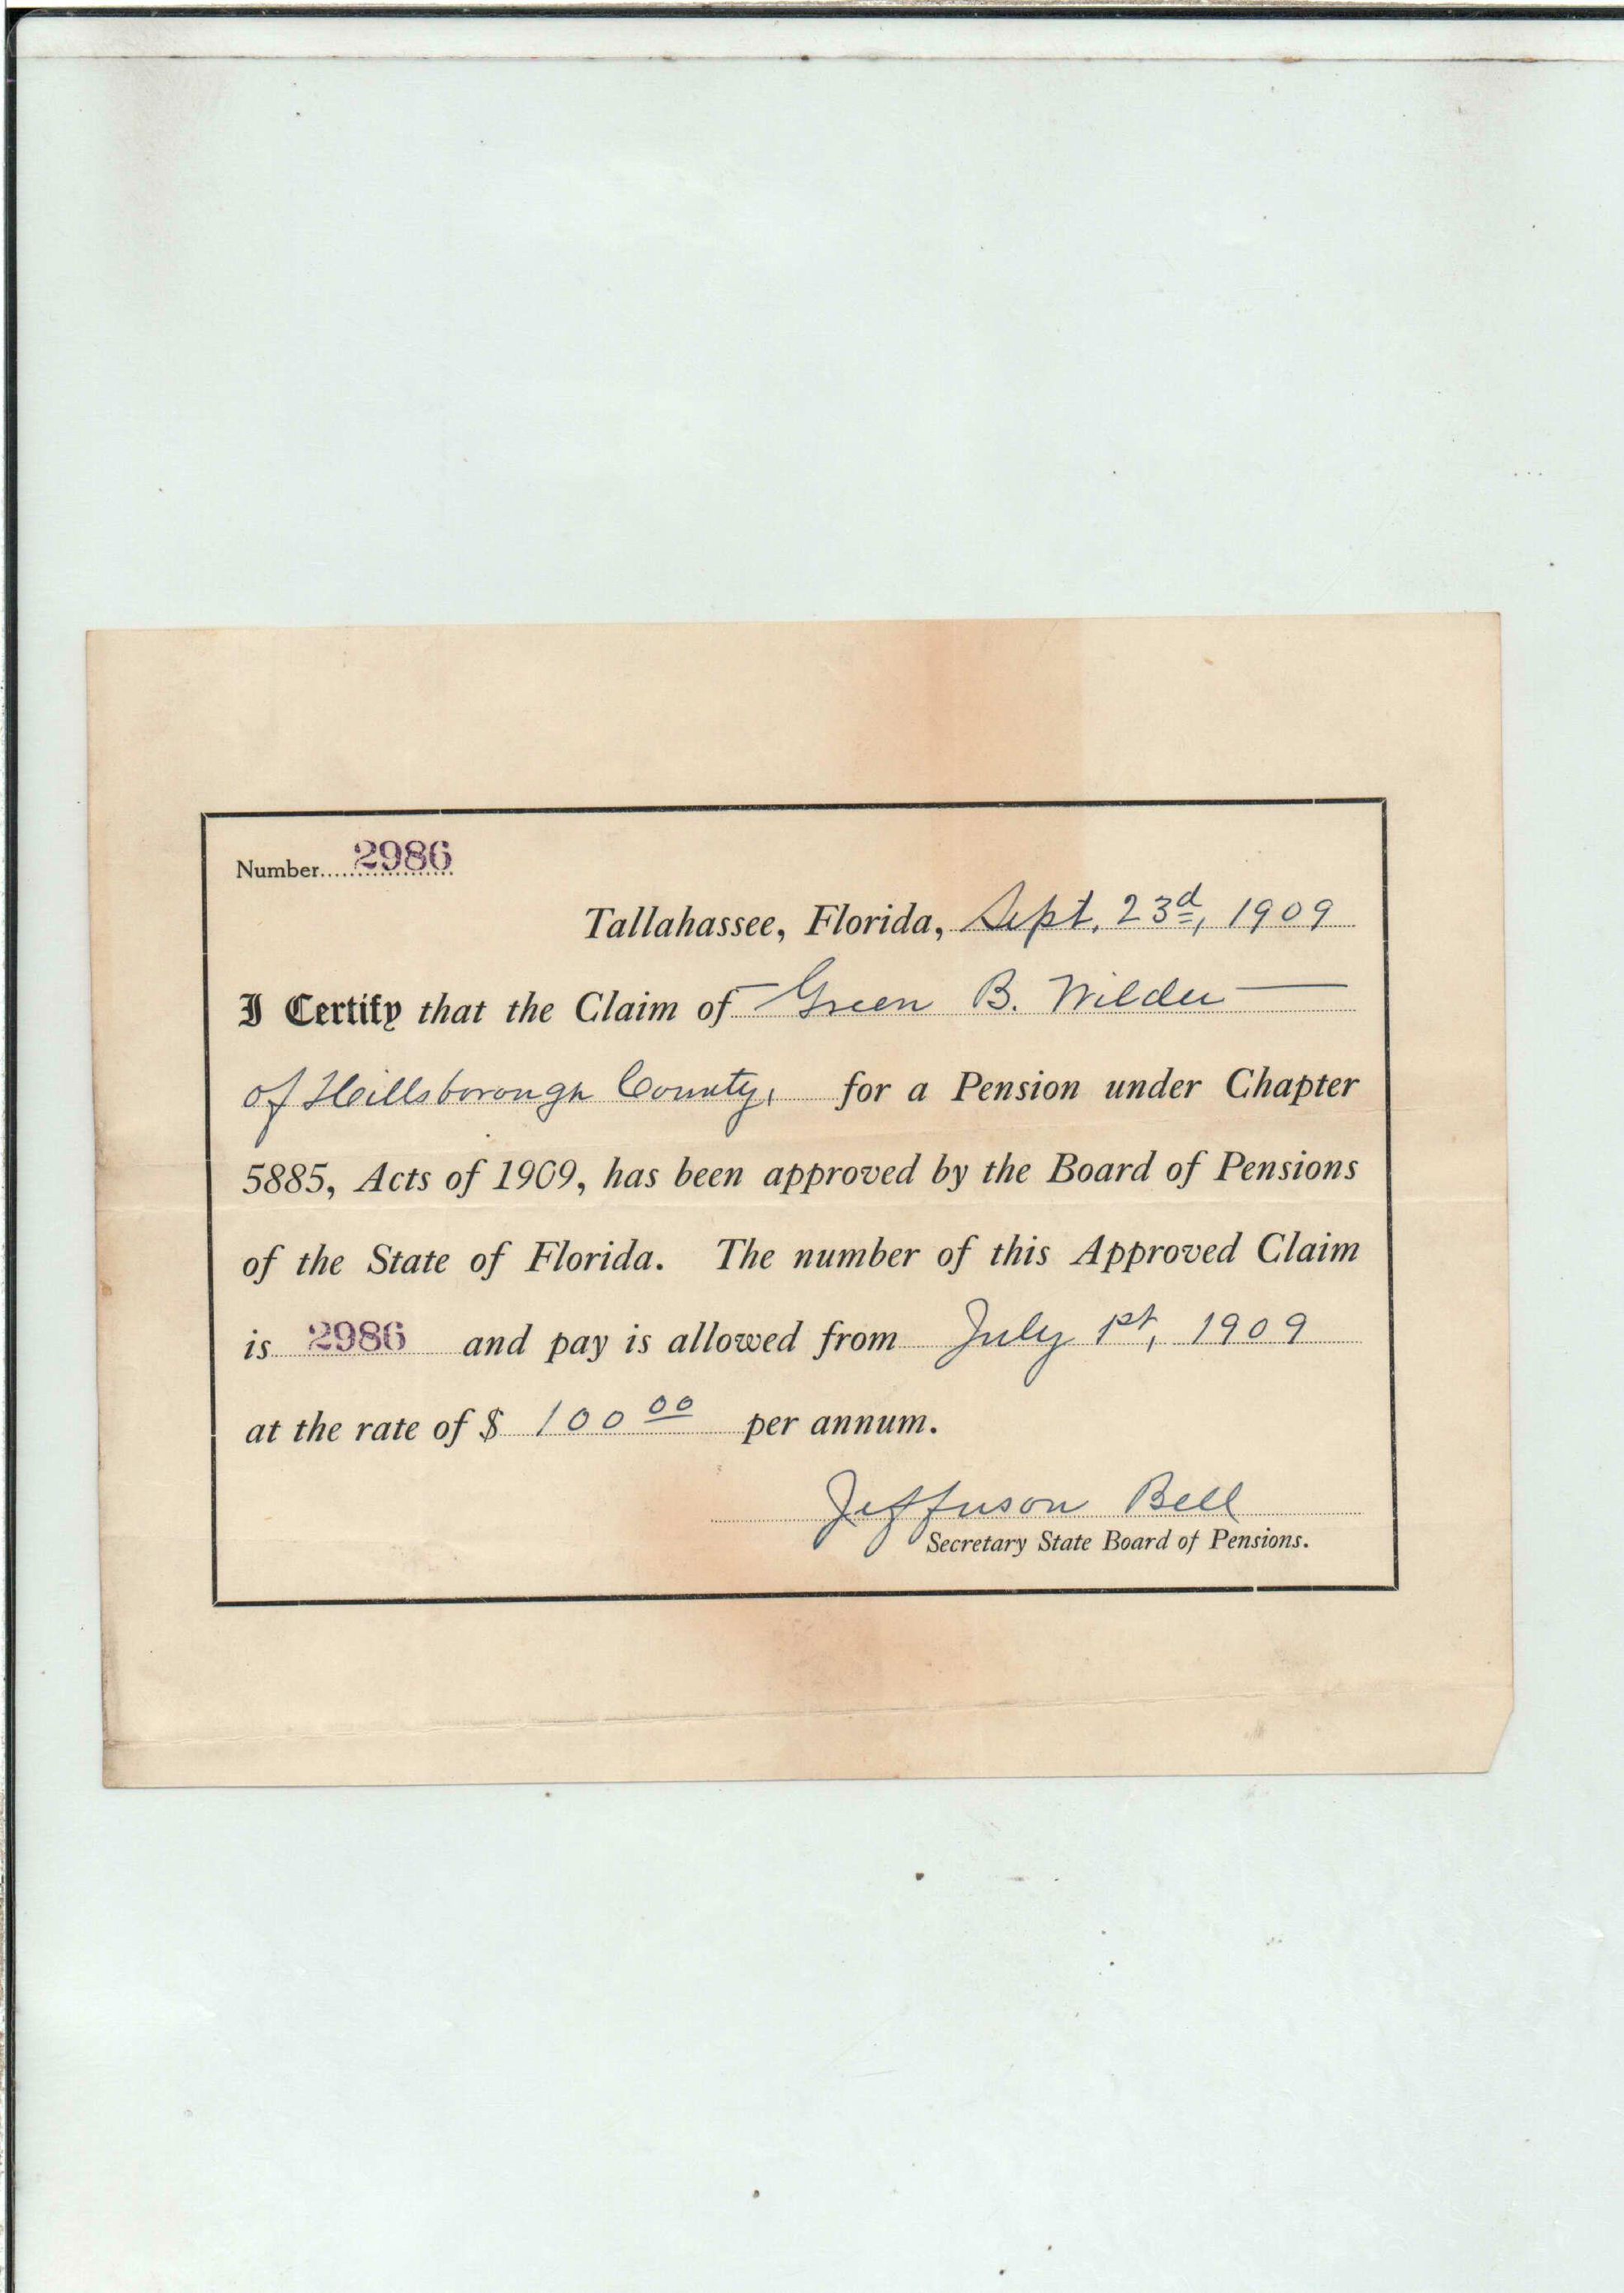 Number.....2986
Tallahassee, Florida, Sept. 23d, 1909
I Certify that the Claim of Green B. Wilder
of Hillsborough County, for a Pension under Chapter
5885, Acts of 1909, has been approved by the Board of Pensions
of the State of Florida. The number of this Approved Claim
is 2986 and pay is allowed from July 1st, 1909
at the rate of $ 100 00 per annum.
Jefferson Bell
Secretary State Board of Pensions.